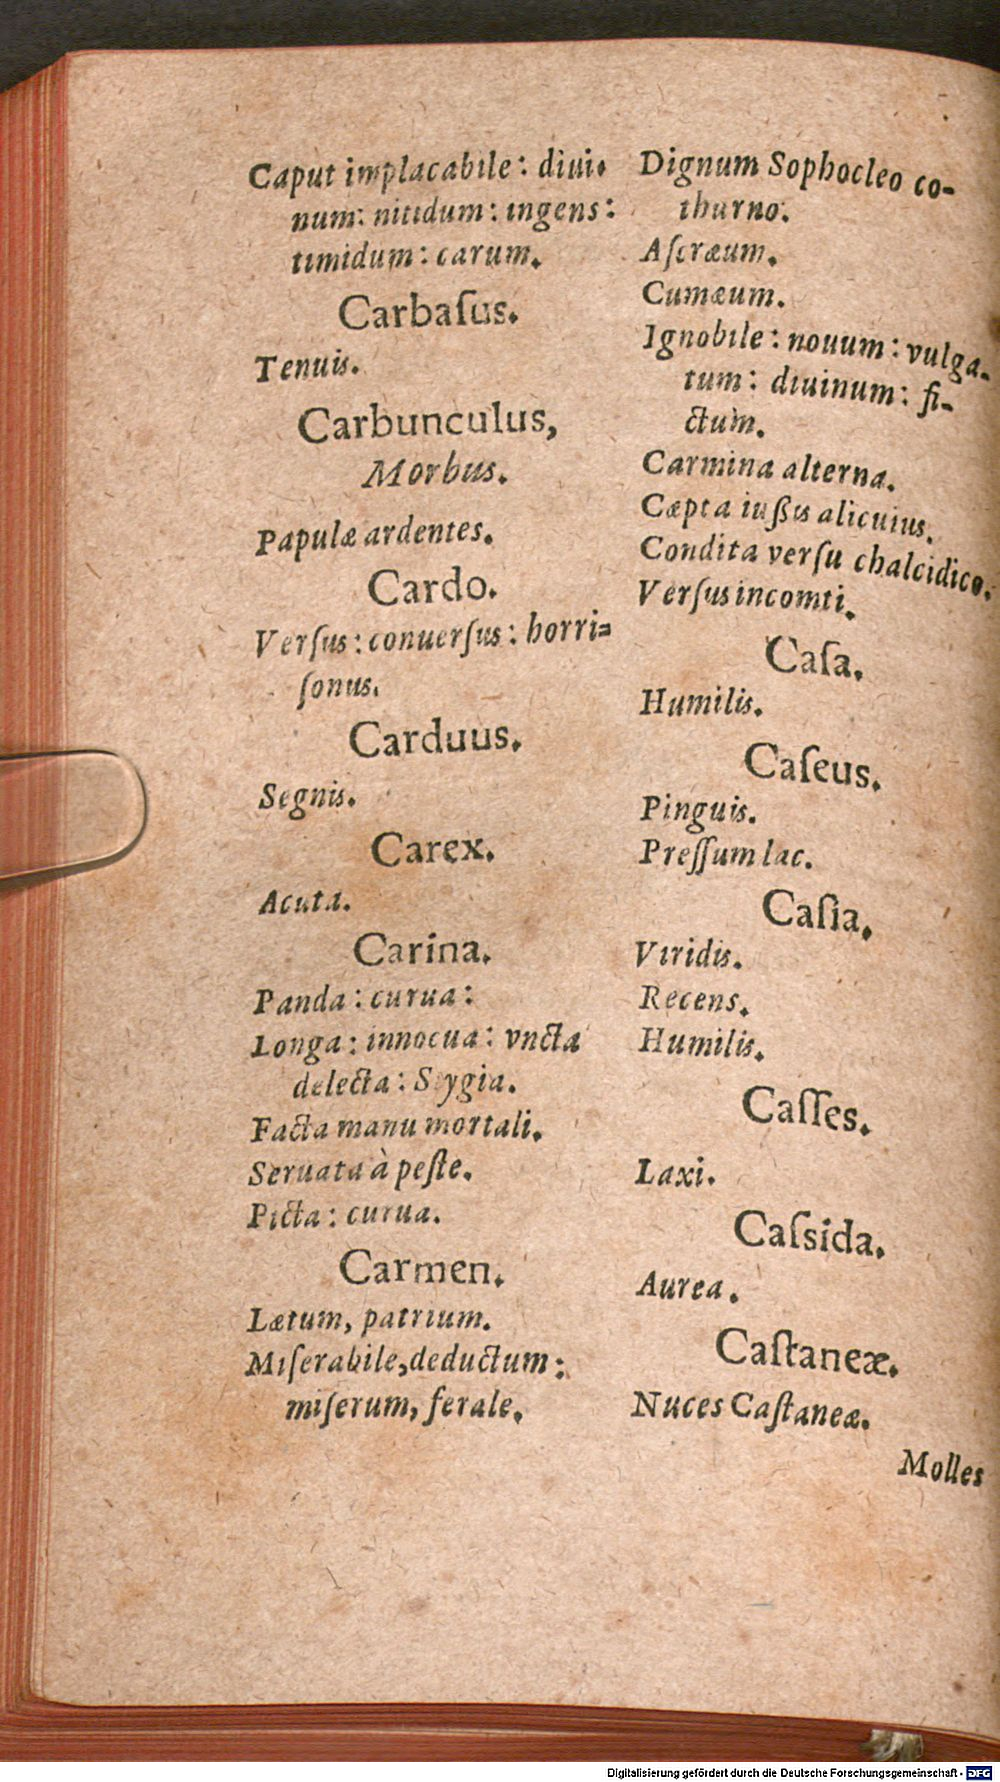 Caput implacabile: diui.
num: nitidum: ingens:
timidum: carum.
Carbaſus.
Tenuis.
Carbunculus,
Morbus.
Papulæ ardentes.
Cardo.
Verſus: conuerſus: horri=
ſonus.
Carduus.
Segnis.
Carex.
Acuta.
Carina.
Panda: curua:
Longa: innocua: vncta
delecta: Stygia.
Facta manu mortali.
Seruata à peſte.
Picta: curua.
Carmen.
Lætum, patrium.
Miſerabile, deductum:
miſerum, ferale.
Dignum Sophocleo co-
thurno.
Aſcræum.
Cumæum.
Ignobile: nouum: vulga-
tum: diuinum: fi-
ctum.
Carmina alterna.
Cæpta iuſsis alicuius.
Condita verſu chalcidico.
Verſus incomti.
Caſa.
Humilis.
Caſeus.
Pinguis.
Preſſum lac.
Caſia.
Viridis.
Recens.
Humilis.
Caſſes.
Laxi.
Caſsida.
Aurea.
Caſtaneæ.
Nuces Caſtaneæ.
Molles
Digitalisierung gefördert durch die Deutsche Forschungsgemeinschaft - DFG